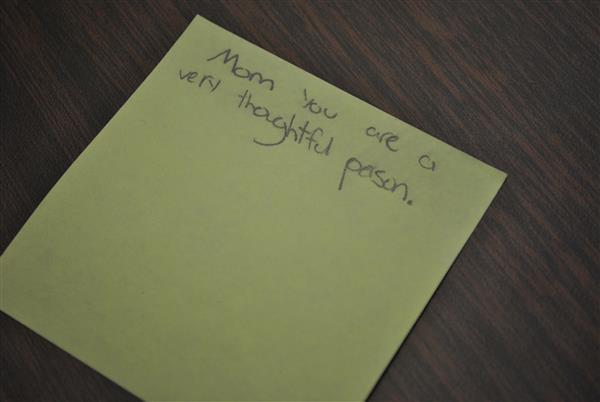 Mom you are a
very thoughtful person.